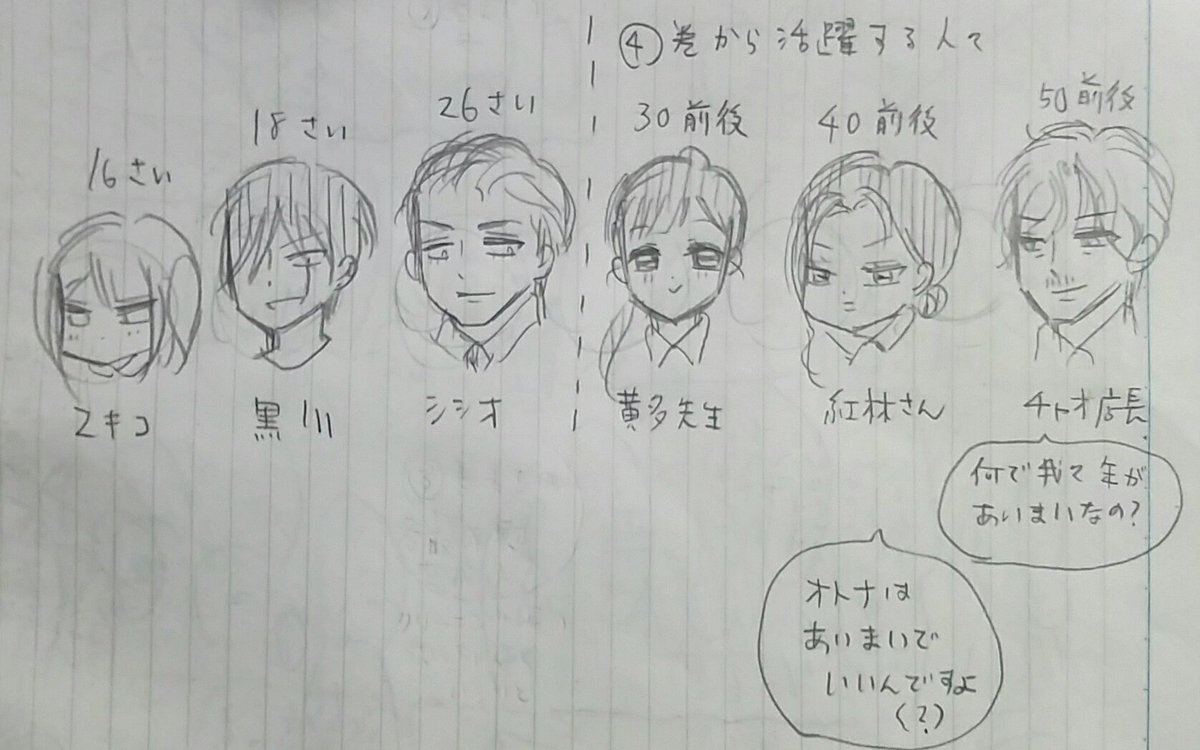 ④巻から活躍する人々
16さい
18さい
26さい
30前後
40前後
50前後
マキコ
黒川
シシオ
黄多先生
紅林さん
チトオ店長
何で我々年が
あいまいなの?
オトナは
あいまいで
いいんですよ
(?)